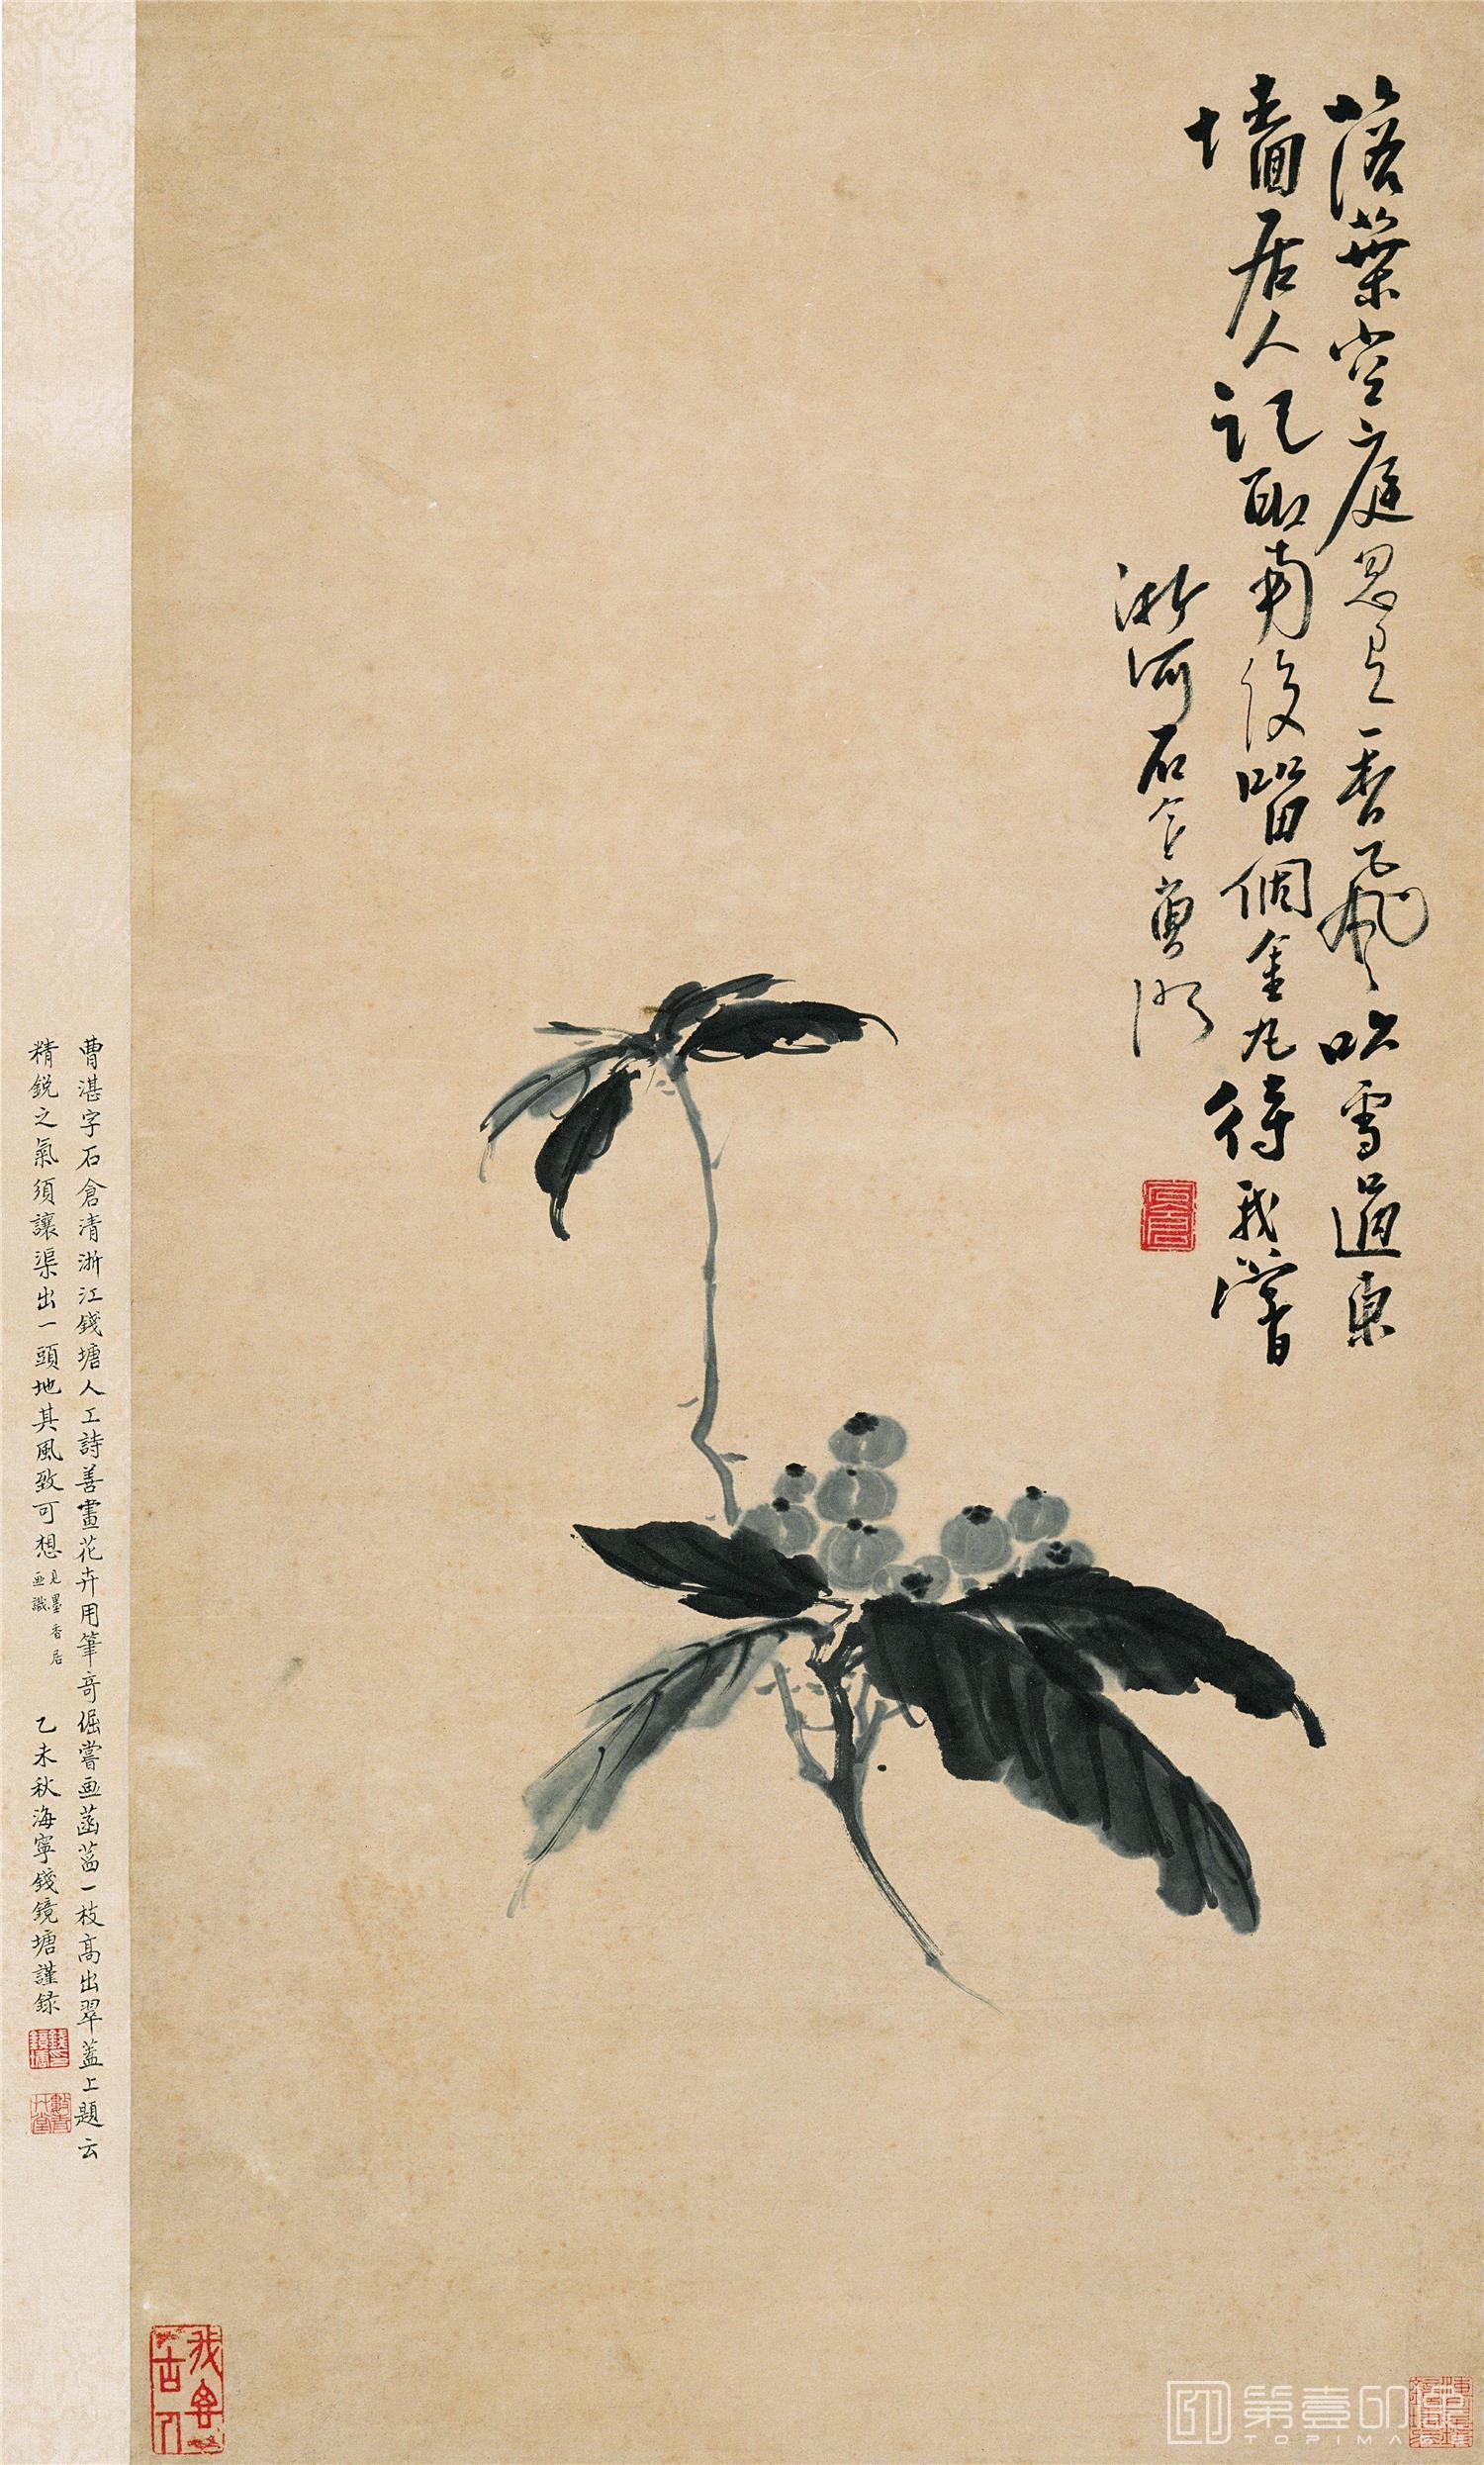 落葉空庭思已香飛風吹雪過東
墻居人記取南後留個金丸待我嘗
浙河石倉曹湛
曹湛字石倉清浙江錢塘人工詩善畫花卉用筆奇倔嘗画菡萏一枝高出翠蓋上題云
精銳之氣須讓渠出一頭地其風致可想見墨香居画識
乙未秋海寧錢鏡塘謹錄
第壹印像
TOPIMAGE